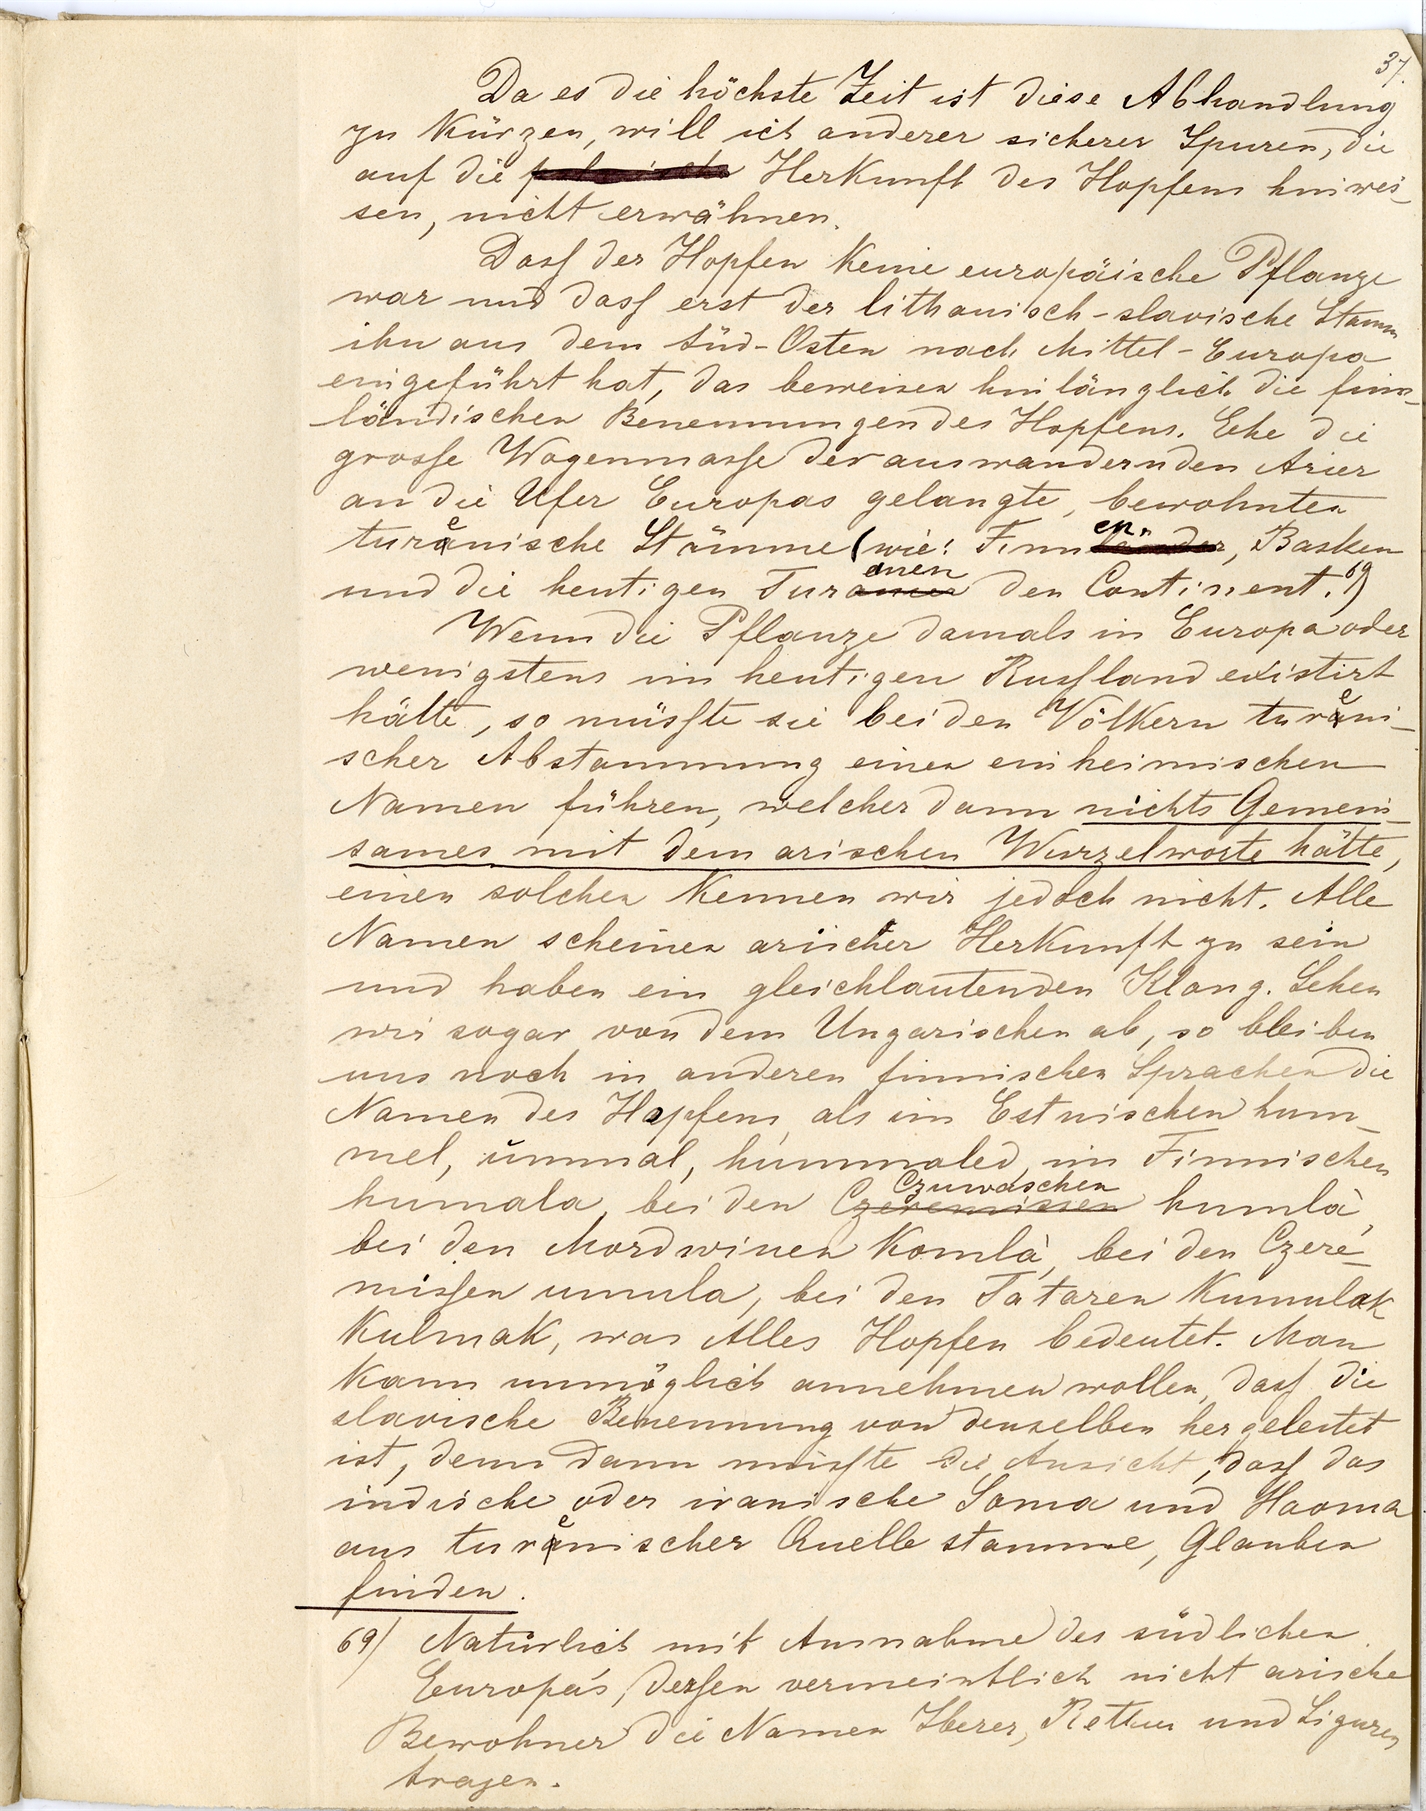 37.
Da es die höchste Zeit ist diese Abhandlung
zu kürzen, will ich anderer sicherer Spuren, die
auf die Herkunft des Hopfens hinwei-
sen, nicht erwähnen.
Dass der Hopfen keine europäische Pflanze
war und dass erst der lithauisch-slavische Stamm
ihn aus dem Süd-Osten nach Mittel-Europa
eingeführt hat, das beweisen hinlänglich die finn-
ländischen Benennungen des Hopfens. Ehe die
grosse Wogenmasse der auswandernden Arier
an die Ufer Europas gelangte, bewohnten
turenische Stämme (wie: Finnen, Basken
und die heutigen Turenen den Continent. 69)
Wenn die Pflanze damals in Europa oder
wenigstens im heutigen Russland existirt
hätte, so müsste sie bei den Völkern tureni-
scher Abstammung einen einheimischen
Namen führen, welcher dann nichts Gemein-
sames mit dem arischen Wurzelworte hätte,
einen solchen kennen wir jedoch nicht. Alle
Namen scheinen arischer Herkunft zu sein
und haben ein gleichlautenden Klang. Sehen
wir sogar von dem Ungarischen ab, so bleiben
uns noch in anderen finnischen Sprachen die
Namen des Hopfens, als im Estnischen hum-
mel, ummal, hummaled, im Finnischen
humala, bei den Czuwaschen humlà,
bei den Mordwinen Komlà, bei den Czere-
missen umula, bei den Tataren Kumulak
Kulmak, was Alles Hopfen bedeutet. Man
kann unmöglich annehmen wollen, dass die
slavische Benennung von denselben hergeleitet
ist, denn dann müsste die Ansicht, dass das
indische oder iranische Soma und Haoma
aus turenischer Quelle stamme, Glauben
finden.
69) Natürlich mit Ausnahme des südlichen
Europa's, dessen vermeintlich nicht arische
Bewohner die Namen Iberer, und Liguren
tragen.